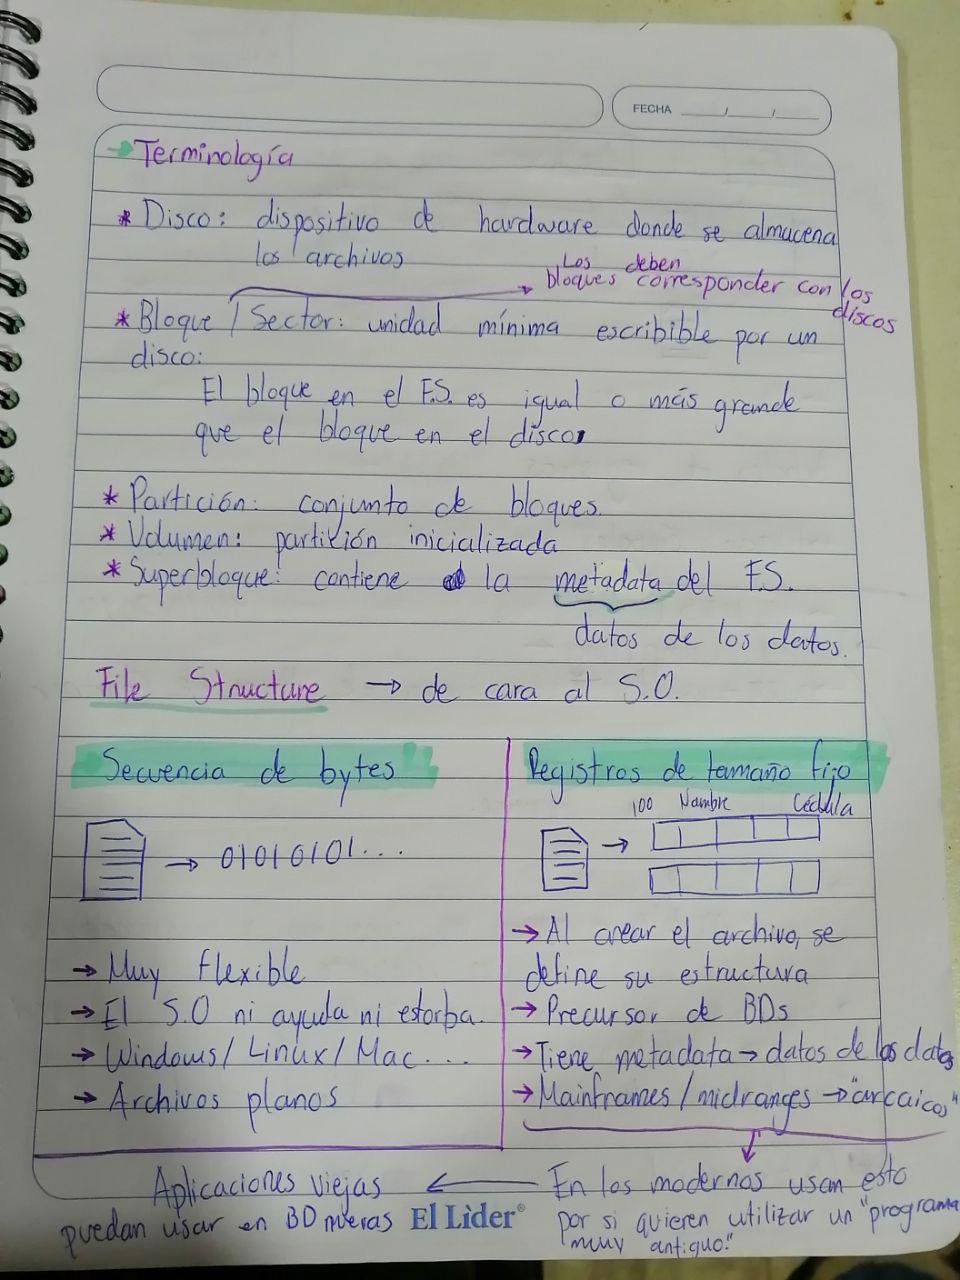 FECHA ___/___/___
→ Terminología
* Disco: dispositivo de hardware donde se almacena
los archivos
Los deben
bloques corresponder con los
discos
* Bloque / Sector: unidad mínima escribible por un
disco:
El bloque en el F.S. es igual o más grande
que el bloque en el disco.
* Partición: conjunto de bloques.
* Volumen: partición inicializada
* Superbloque: contiene la metadata del F.S.
datos de los datos.
File Structure → de cara al S.O.
Secuencia de bytes
→ 01010101...
→ Muy flexible
→ El S.O ni ayuda ni estorba.
→ Windows/ Linux/ Mac...
→ Archivos planos
Registros de tamaño fijo
100 Nombre Cédula
→
→ Al crear el archivo, se
define su estructura
→ Precursor de BDs
→ Tiene metadata → datos de los datos
→ Mainframes / midranges → "arcaicos"
En los modernos usan esto
por si quieren utilizar un "programa
muy antiguo."
Aplicaciones viejas
puedan usar en BD nuevas
El Líder®